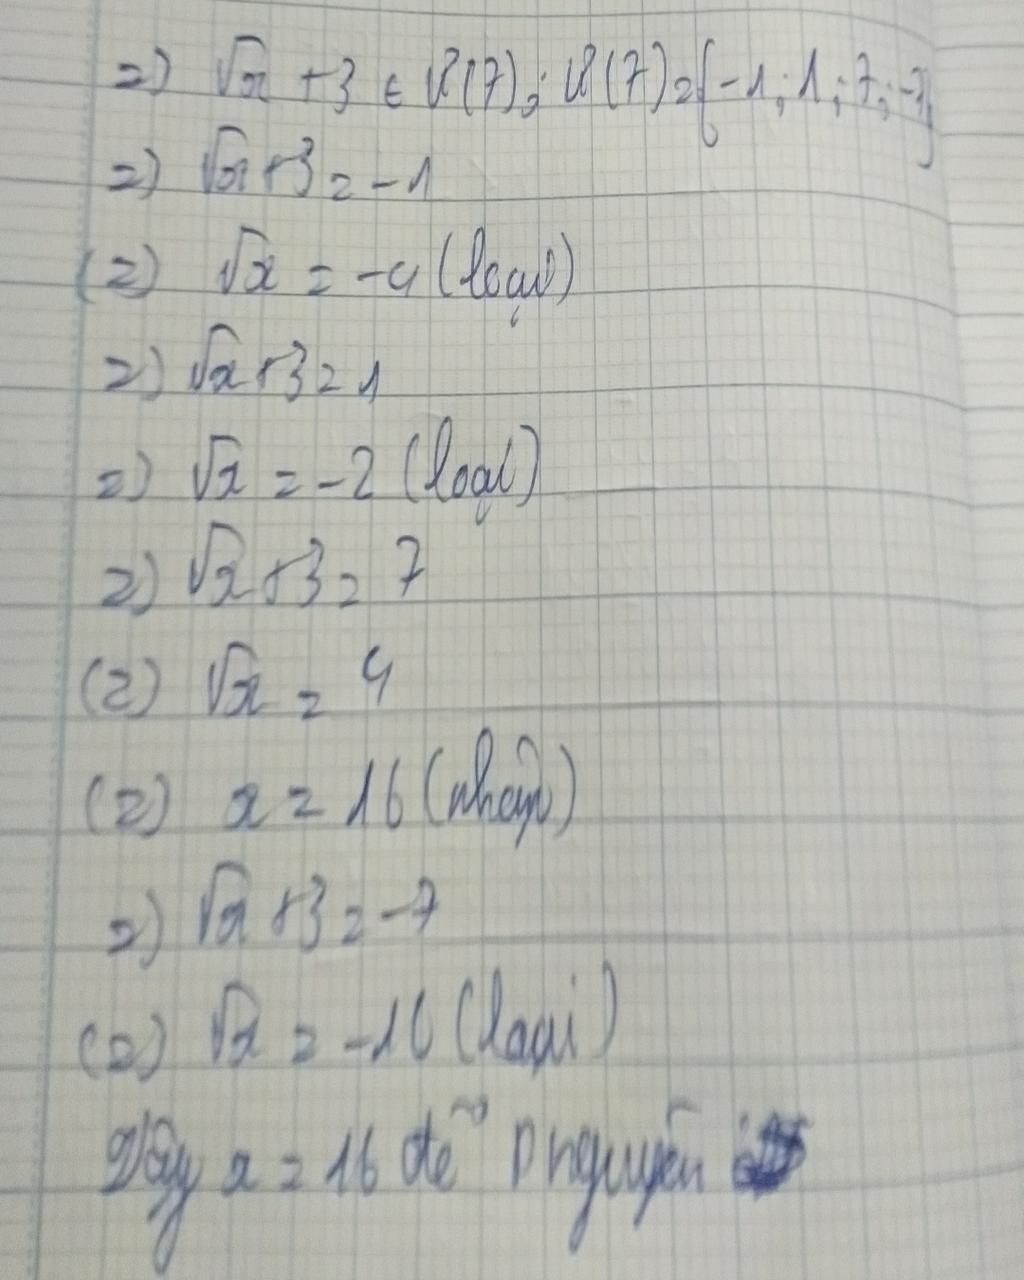 =) √x + 3 ∈ Ư(7); Ư(7) = {-1; 1; 7; -7}
=) √x + 3 = -1
(=) √x = -4 (loại)
=) √x + 3 = 1
=) √x = -2 (loại)
=) √x + 3 = 7
(=) √x = 4
(=) x = 16 (nhận)
=) √x + 3 = -7
(=) √x = -10 (loại)
Vậy x = 16 để P nguyên